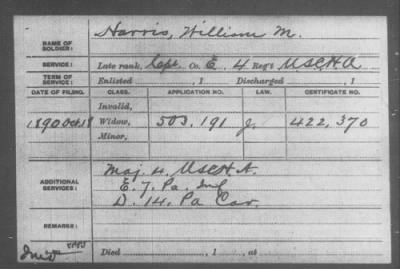 NAME OF SOLDIER: Harris, William M.
SERVICE: Late rank, Capt Co. E, 4 Reg't U.S.C.H.A.
TERM OF SERVICE: Enlisted , 1 Discharged , 1
DATE OF FILING. CLASS. APPLICATION NO. LAW. CERTIFICATE NO.
Invalid,
1890 Oct 18 Widow, 503,191 J. 422,370
Minor,
ADDITIONAL SERVICES: Maj. 4. U.S.C.H.A.
E. 7. Pa. Inf
D. 14. Pa Cav.
REMARKS:
Died , 1 , at